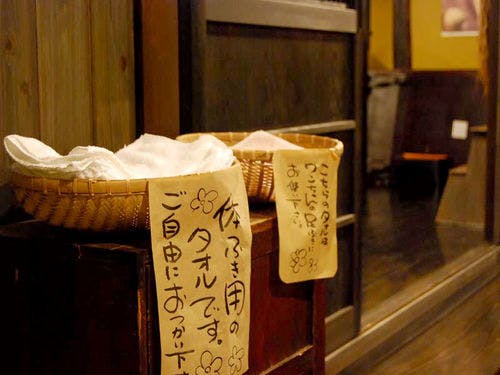 体ふき用の
タオルです。
ご自由におつかい下
こちらのタオルは
ワンちゃんの足ふきに
お使い下さい。